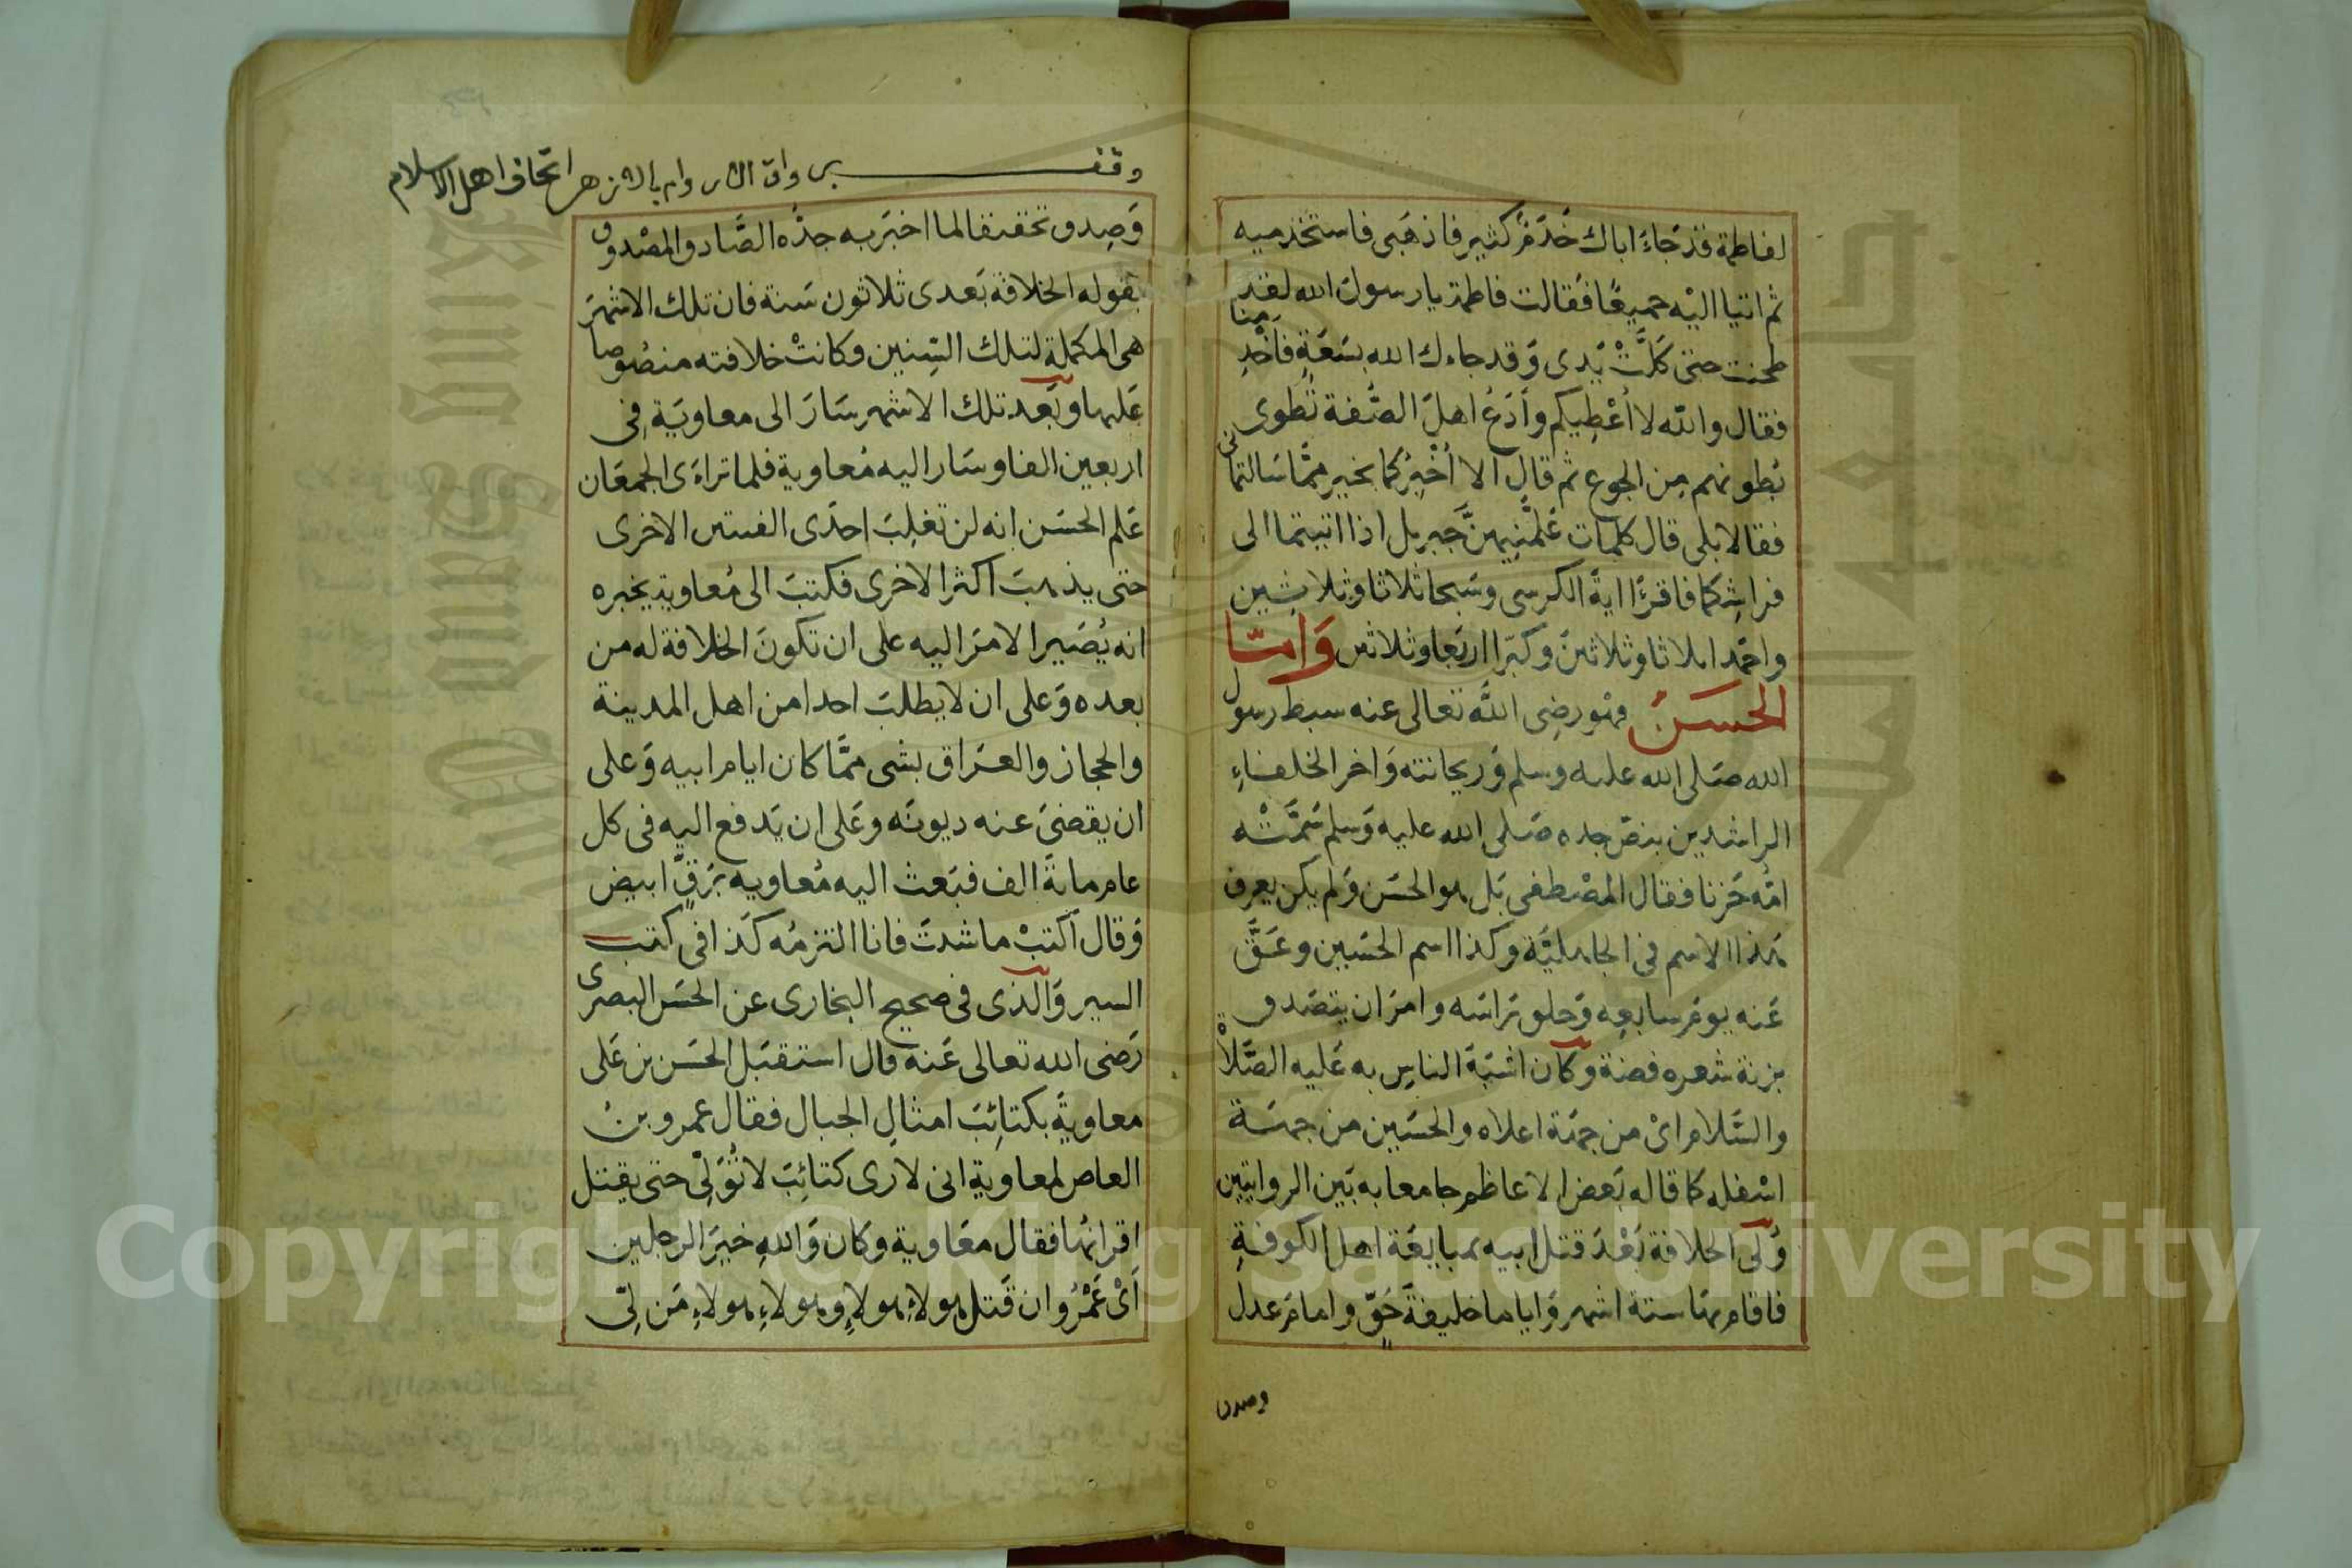 لفاطمة قد جاءَ اباك خَدَمٌ كثير فاذهَبى فاستخذميه
ثم اتيا اليْه جميعًا فقالت فاطمة يا رسولَ الله لقد
طحنت حتى كَلَّتْ يَدى وَقد جاءك الله بسَعَةٍ فأخْدِمنا
فقال والله لا أُعْطِيكم وأدَعُ اهلَ الصُّفة تُطوى
بُطونهم مِن الجوع ثم قال الا أُخْبِركما بخير ممَّا سَالتمانى
فقالا بَلى قال كلمات عَلَّمَنِيهنَّ جبريل اذا اتيتما الى
فراشِكما فاقرَأا ايةَ الكرسى وسَبحا ثلاثا وثلاثين
واحمَدا ثلاثا وثلاثينَ وكبّرا اربَعا وثلاثين وَامّا
الحسَنُ فهُو رضِى اللَّه تعالى عنه سبط رسول
الله صَلى الله عليه وسلم وَريحانته وَاخر الخلفاءِ
الراشدين بنصّ جده صَلى الله عليه وَسلم سَمَّتْه
امُّه حَرْبا فقال المصْطفى بَل هو الحسَن وَلم يكن يعرف
هَذا الاسم فى الجاهليَّة وكذا اسم الحسَين وعَقَّ
عَنه يومَ سابعِه وَحلق رَاسَه وامرَ ان يتصَدق
بزنة شعره فضة وكان اشبَهَ الناسِ به عَليه الصَّلاة
والسَّلام اىْ من جهَة اعلاه والحسَين من جهَة
اسْفله كما قاله بَعض الاعاظم جامعا به بَين الروايتين
وُلى الخلافة بَعْدَ قتل ابيه بمبايعَة اهل الكوفةِ
فاقام بهَا ستة اشهر وَاياما خليفةَ حَقّ وامامَ عدل
وصدق
وقف
اتحاف اهل الاسلام
وَصِدق تحقيقا لما اخبَر به جدُّه الصَّادق المصْدوق
بقوله الخلافة بَعدى ثلاثون سَنة فان تلك الاشهُرَ
هى المكملة لتلك السِّنين وكانتْ خلافته منصُوصا
عَليها وبَعد تلك الاشهر سَارَ الى معاويَة فِى
اربعين الفا وسَار اليه مُعاوية فلما تراءَى الجمعَان
عَلم الحسَن انه لن تغلِبَ احدَى الفئتين الاخرى
حتى يذهبَ اكثر الاخرى فكتبَ الى مُعاوية يخبره
انه يُصَير الامرَ اليه على ان تكونَ الخلافة له من
بعده وَعلى ان لا يطلبَ احدا من اهل المدينة
والحجاز والعرَاق بشى ممَّا كان ايام ابيه وَعلى
ان يقضىَ عنه ديونَه وعَلى ان يَدفع اليه فى كل
عام مائةَ الف فبَعث اليه مُعاويه بَرَقٍّ ابيض
وَقال اكتبْ ما شئتَ فانا التزمُه كَذا فى كتب
السير وَالذى فى صحيح البخارى عن الحسَن البصرى
رَضى الله تعالى عَنه قال استقبَل الحسَن بن عَلى
معاويةَ بكتائِبَ امثالِ الجبال فقال عمرو بنُ
العاص لمعاوية انى لارى كتائِبَ لا تُوَلِّى حتى يقتل
اقرانَها فقال معَاوية وكان وَاللهِ خيرَ الرجلين
أَىْ عَمْرُو ان قَتل هولاءِ هولاءِ وهولاءِ هولاءِ مَن لِى